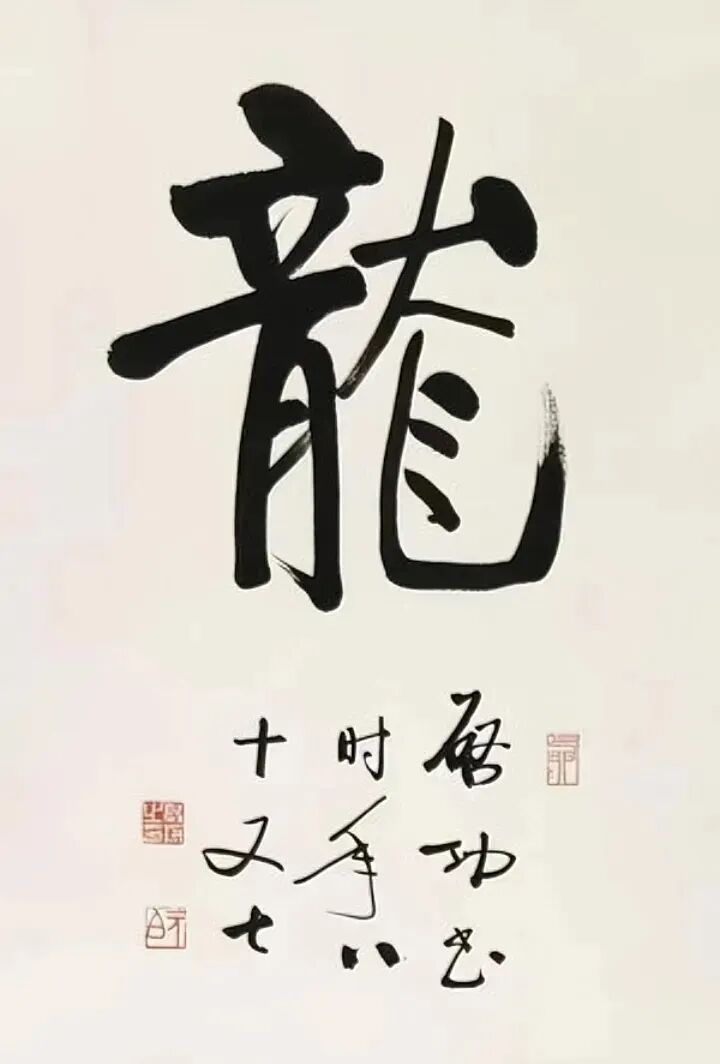 龍
啓功书
时年八
十又七